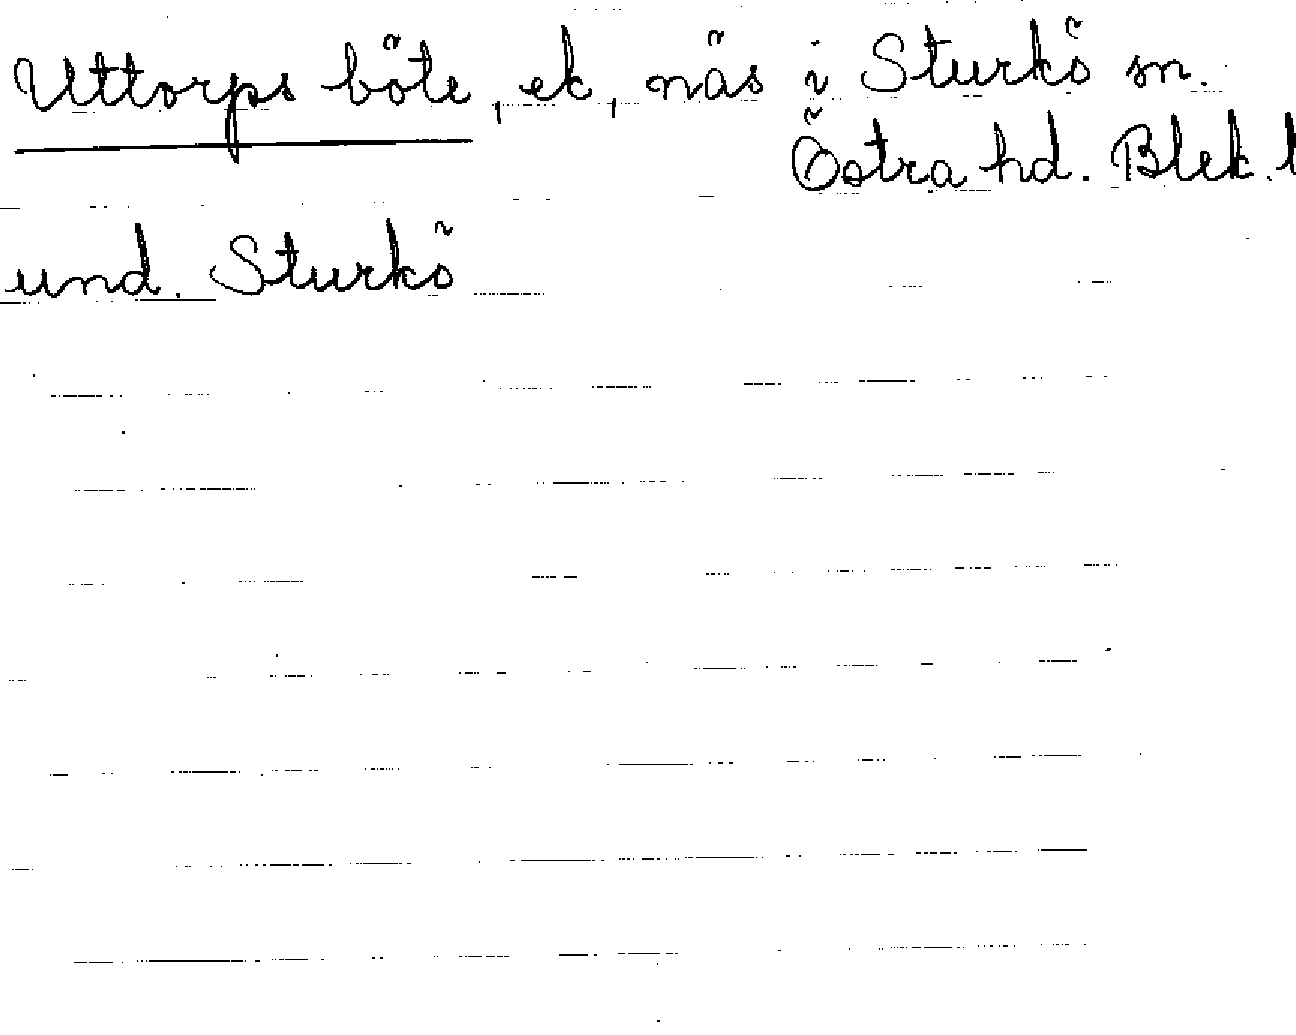 Uttorps böte, ek, näs i Sturkö sn.
Östra hd. Blek. l
und. Sturkö